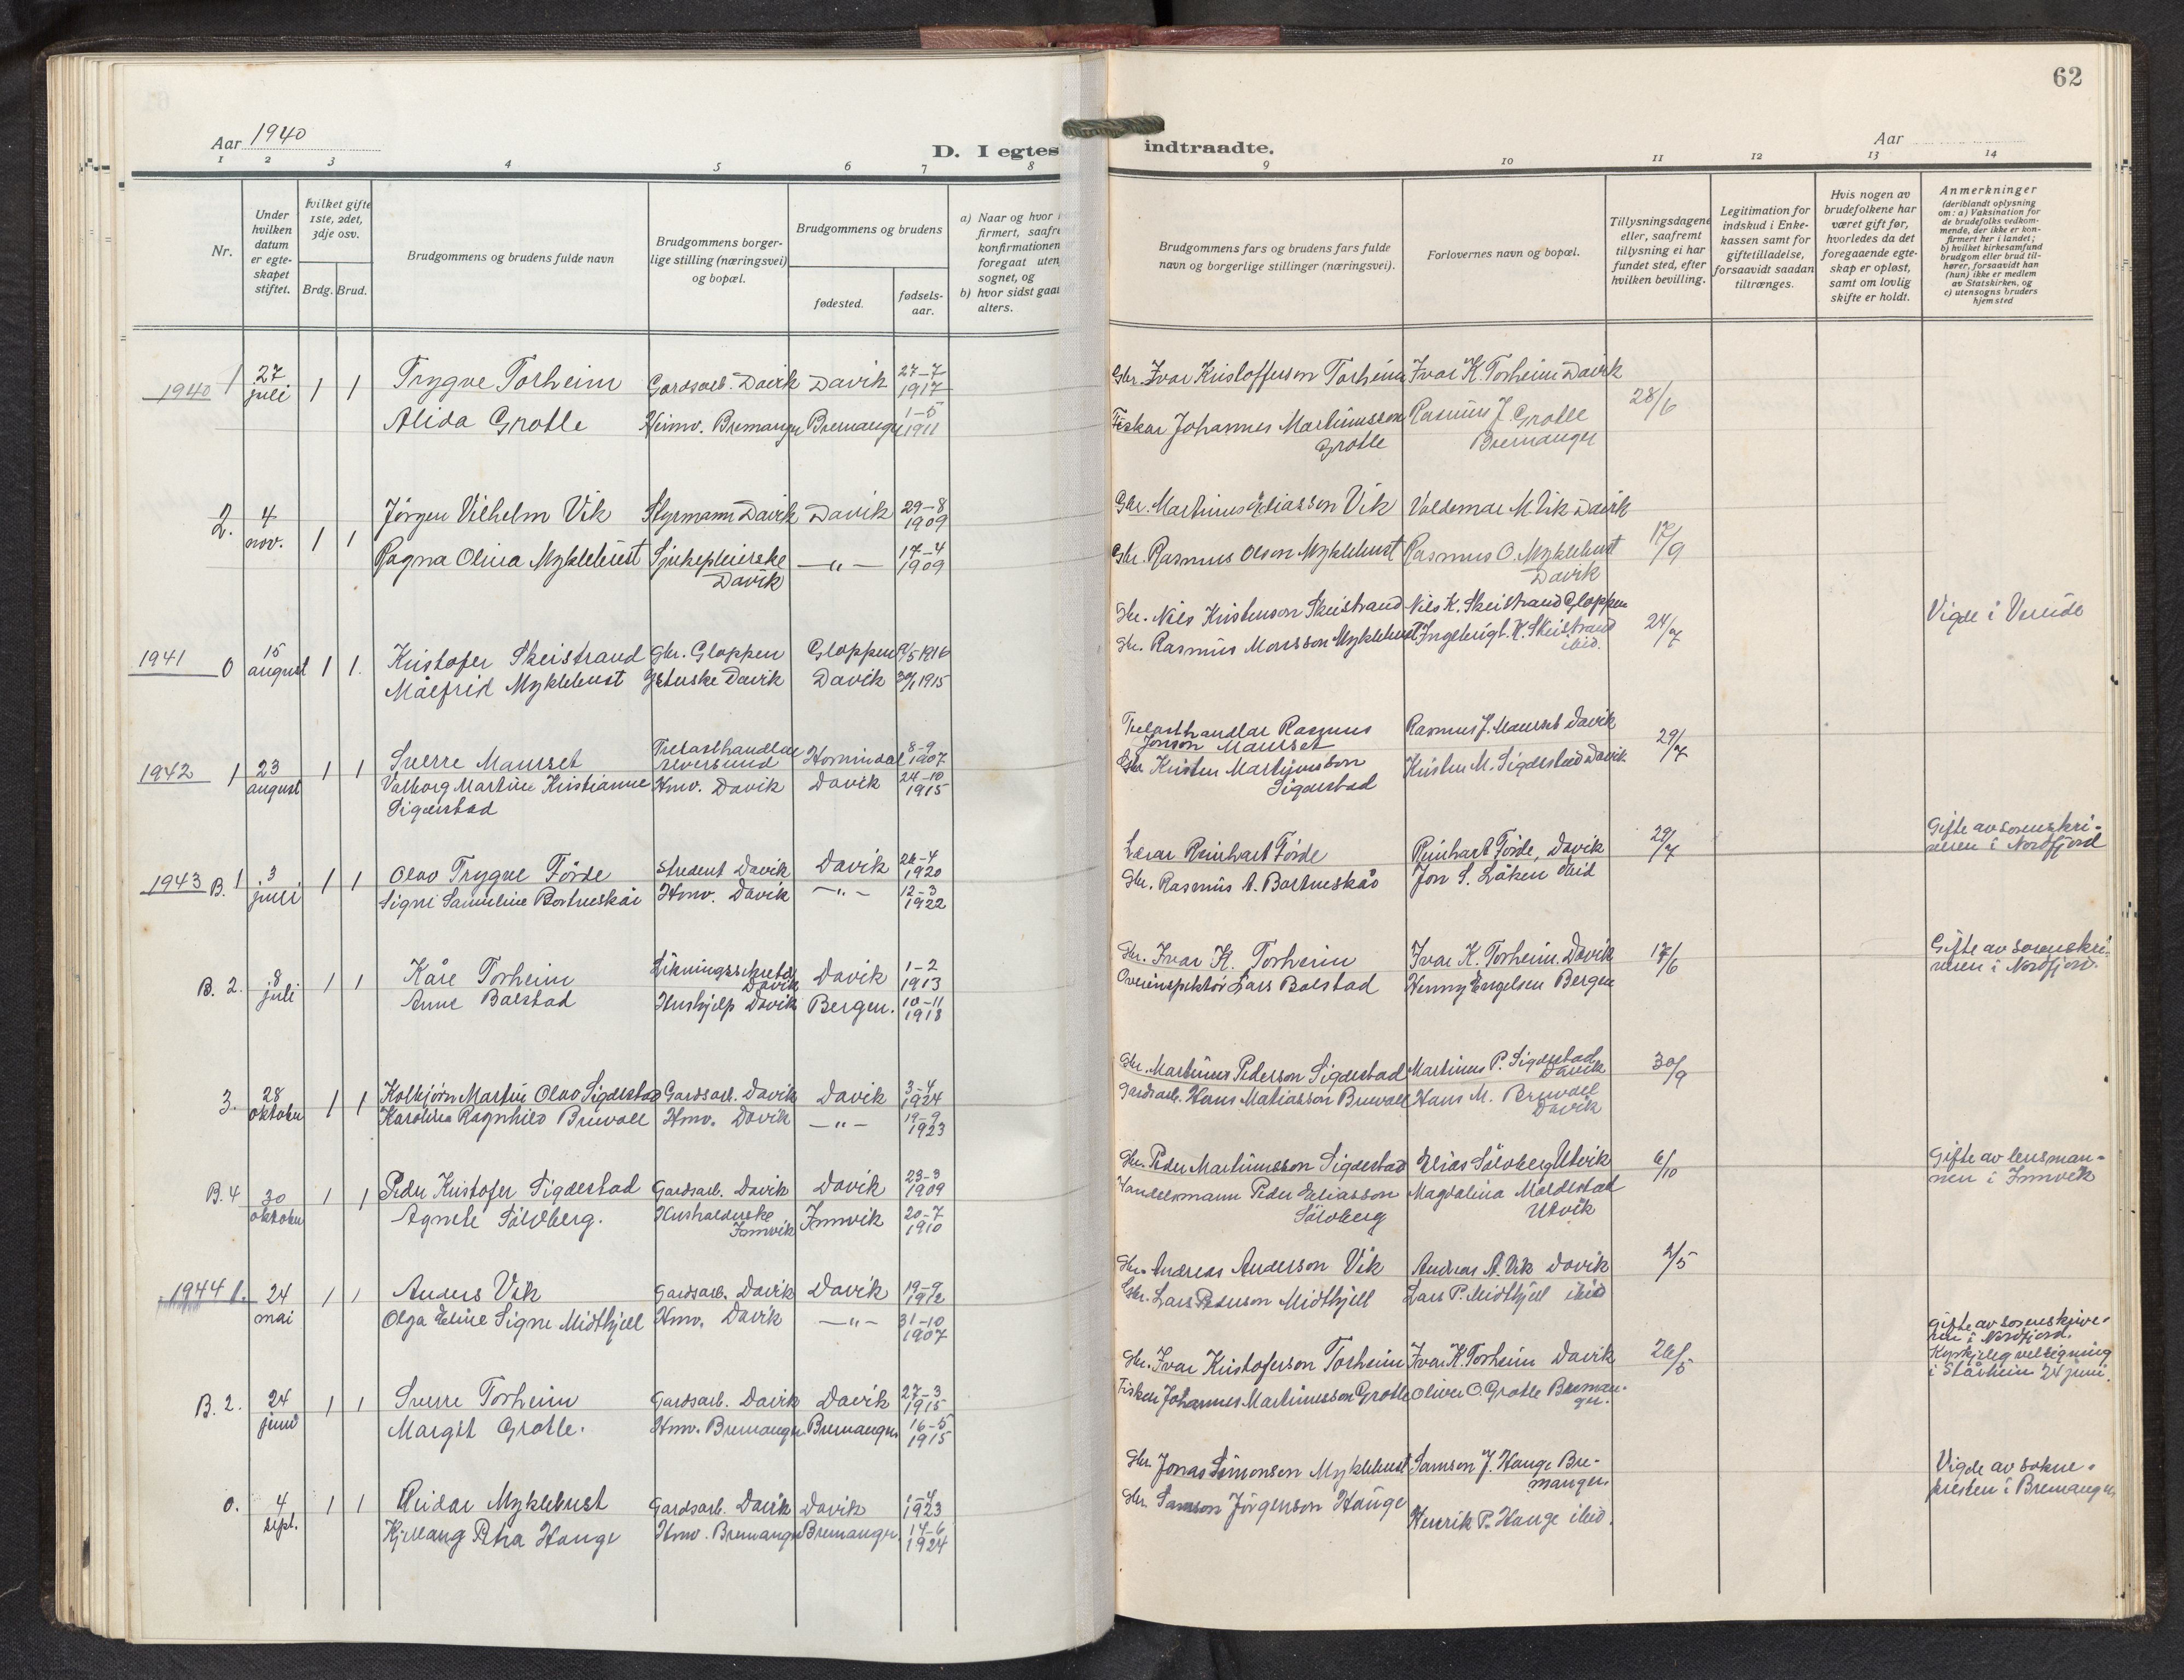 62
Aar 1940
D. I egtes
indtraadte.
Aar
1 2 3 4 5 6 7 8
9 10 11 12 13 14
Nr.
Under
hvilken
datum
er egte-
skapet
stiftet.
hvilket gifte
1ste, 2det,
3dje osv.
Brdg. Brud.
Brudgommens og brudens fulde navn
Brudgommens borger-
lige stilling (næringsvei)
og bopæl.
Brudgommens og brudens
fødested.
fødsels-
aar.
a) Naar og hvor
firmert, saafre
konfirmationen
foregaat uten
sognet, og
b) hvor sidst gaa
alters.
Brudgommens fars og brudens fars fulde
navn og borgerlige stillinger (næringsvei).
Forlovernes navn og bopæl.
Tillysningsdagene
eller, saafremt
tillysning ei har
fundet sted, efter
hvilken bevilling.
Legitimation for
indskud i Enke-
kassen samt for
giftetilladelse,
forsaavidt saadan
tiltrænges.
Hvis nogen av
brudefolkene har
været gift før,
hvorledes da det
foregaaende egte-
skap er opløst,
samt om lovlig
skifte er holdt.
Anmerkninger
(deriblandt oplysning
om: a) Vaksination for
de brudefolks vedkom-
mende, der ikke er kon-
firmert her i landet;
b) hvilket kirkesamfund
brudgom eller brud til-
hører, forsaavidt han
(hun) ikke er medlem
av Statskirken, og
c) utensogns bruders
hjemsted
1940 1 27 juli 1 1 Trygve Torheim Gardsarb. Davik Davik 27-7 1917 Gbr. Ivar Kristofferson Torheim Ivar K. Torheim Davik 28/6
Alida Grotle Heimv. Bremanger Bremanger 1-5 1911 Fiskar Johannes Martinusson Grotle Rasmus J. Grotle Bremanger
2. 4 nov. 1 1 Jørgen Vilhelm Vik Styrmann Davik Davik 29-8 1909 Gbr. Martinus Eliasson Vik Valdemar M. Vik Davik 17/9
Ragna Olina Myklebust Sjukepleierske Davik —"— 17-4 1909 Gbr. Rasmus Olson Myklebust Rasmus O. Myklebust Davik
1941 0 15 august 1 1. Kristofer Skeistrand Gbr. Gloppen Gloppen /5 1916 Gbr. Nils Kristenson Skeistrand Nils K. Skeistrand Gloppen 24/7 Vigde i Vereide
Målfrid Myklebust Davik Davik 30/1 1915 Gbr. Rasmus Monsson Myklebust K. Skeistrand ibid.
1942 1 23 august 1 1 Sverre Maurset Trelasthandlar Hornindal 8-9 1907 Trelasthandlar Rasmus Jonson Maurset Rasmus J. Maurset Davik 29/7
Valborg Martine Kristianne Sigdestad Hmv. Davik Davik 24-10 1915 Gbr. Kristen Martinusson Sigdestad Kristen M. Sigdestad Davik
1943 B. 1 3 juli 1 1 Olav Trygve Förde Student Davik Davik 26-4 1920 Lærar Reinhart Förde Reinhart Förde, Davik 29/7 Gifte av sorenskri-veren i Nordfjord
Signe Samuline Bortneskår Hmv. Davik —"— 12-3 1922 Gbr. Rasmus A. Bortneskår Jon S. Löken ibid
B. 2. 8 juli 1 1 Kåre Torheim Likningssekretær Davik Davik 1-2 1913 Gbr. Ivar K. Torheim Ivar K. Torheim. Davik 17/6 Gifte av sorenskri-veren i Nordfjord.
Anne Balstad Hushjelp Davik Bergen. 10-11 1918 Overinspektör Lars Balstad Henny Engelsen Bergen
3. 28 oktober 1 1 Kolbjørn Martin Olav Sigdestad Gardsarb. Davik Davik 3-4 1924 Gbr. Martinus Pederson Sigdestad Martinus P. Sigdestad Davik 30/9
Karolina Ragnhild Bruvoll Hmv. Davik —"— 19-9 1923 Gardsarb. Hans Matiasson Bruvoll Hans M. Bruvoll Davik
B. 4 30 oktober 1 1 Peder Kristofer Sigdestad Gardsarb. Davik Davik 23-3 1909 Gbr. Peder Martinusson Sigdestad Elias Sölvberg Utvik 6/10 Gifte av lensman-nen i Innvik
Agnete Sölvberg. Hushalderske Innvik Innvik 20-7 1910 Handelsmann Peder Eliasson Sölvberg Magdalina Moldestad Utvik
1944 1. 24 mai 1 1 Anders Vik Gardsarb. Davik Davik 19-9 1912 Gbr. Andreas Anderson Vik Andreas A. Vik Davik 2/5
Olga Eline Signe Midthjell Hmv. Davik —"— 31-10 1907 Gbr. Lars Pederson Midthjell Lars P. Midthjell ibid
B. 2. 24 juni 1 1 Sverre Torheim Gardsarb. Davik Davik 27-3 1915 Gbr. Ivar Kristoferson Torheim Ivar K. Torheim Davik 26/5 Gifte av sorenskrive-ren i Nordfjord. Kyrkjeleg velsigning i Stårheim 24 juni.
Margit Grotle. Hmv. Bremanger Bremanger 16-5 1915 Fiskar Johannes Martinusson Grotle Oliver O. Grotle Breman-ger.
0. 4 sept. 1 1 Reidar Myklebust Gardsarb. Davik Davik 1-4 1923 Gbr. Jonas Simonsen Myklebust Samson J. Hauge Bre-manger Vigde av sokne-presten i Bremanger.
Kjellaug Petra Hauge Hmv. Bremanger Bremanger 14-6 1924 Gbr. Samson Jörgenson Hauge Henrik P. Hauge ibid.